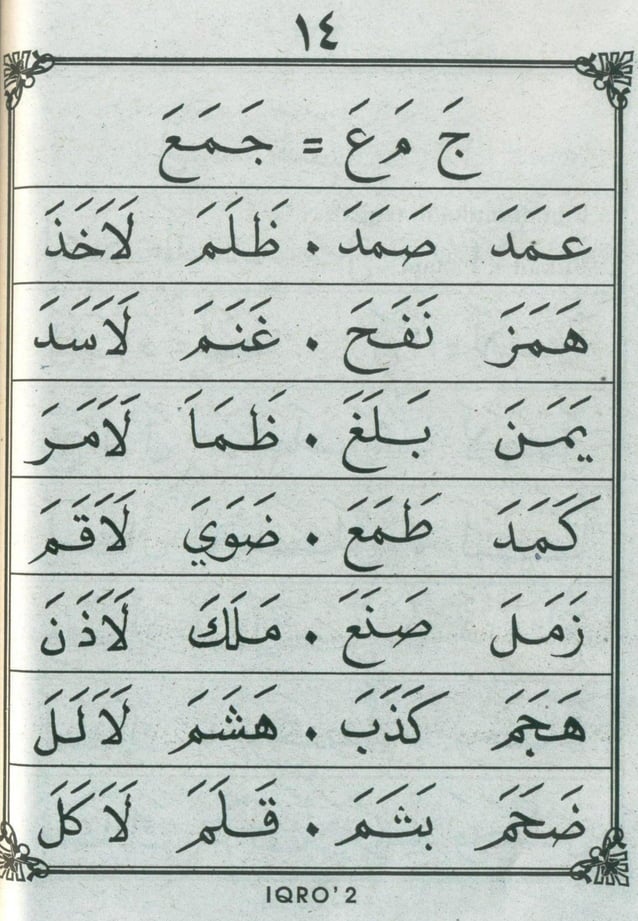 ١٤
جَ مَ عَ = جَمَعَ
عَمَدَ صَمَدَ . ظَلَمَ لَاَخَذَ
هَمَزَ نَفَحَ . غَنَمَ لَاَسَدَ
يَمَنَ بَلَغَ . ظَمَاَ لَاَمَرَ
كَمَدَ طَمَعَ . ضَوَيَ لَاَقَمَ
زَمَلَ صَنَعَ . مَلَكَ لَاَذَنَ
هَجَمَ كَذَبَ . هَشَمَ لَاَلَلَ
ضَحَمَ بَثَمَ . قَلَمَ لَاَكَلَ
IQRO' 2